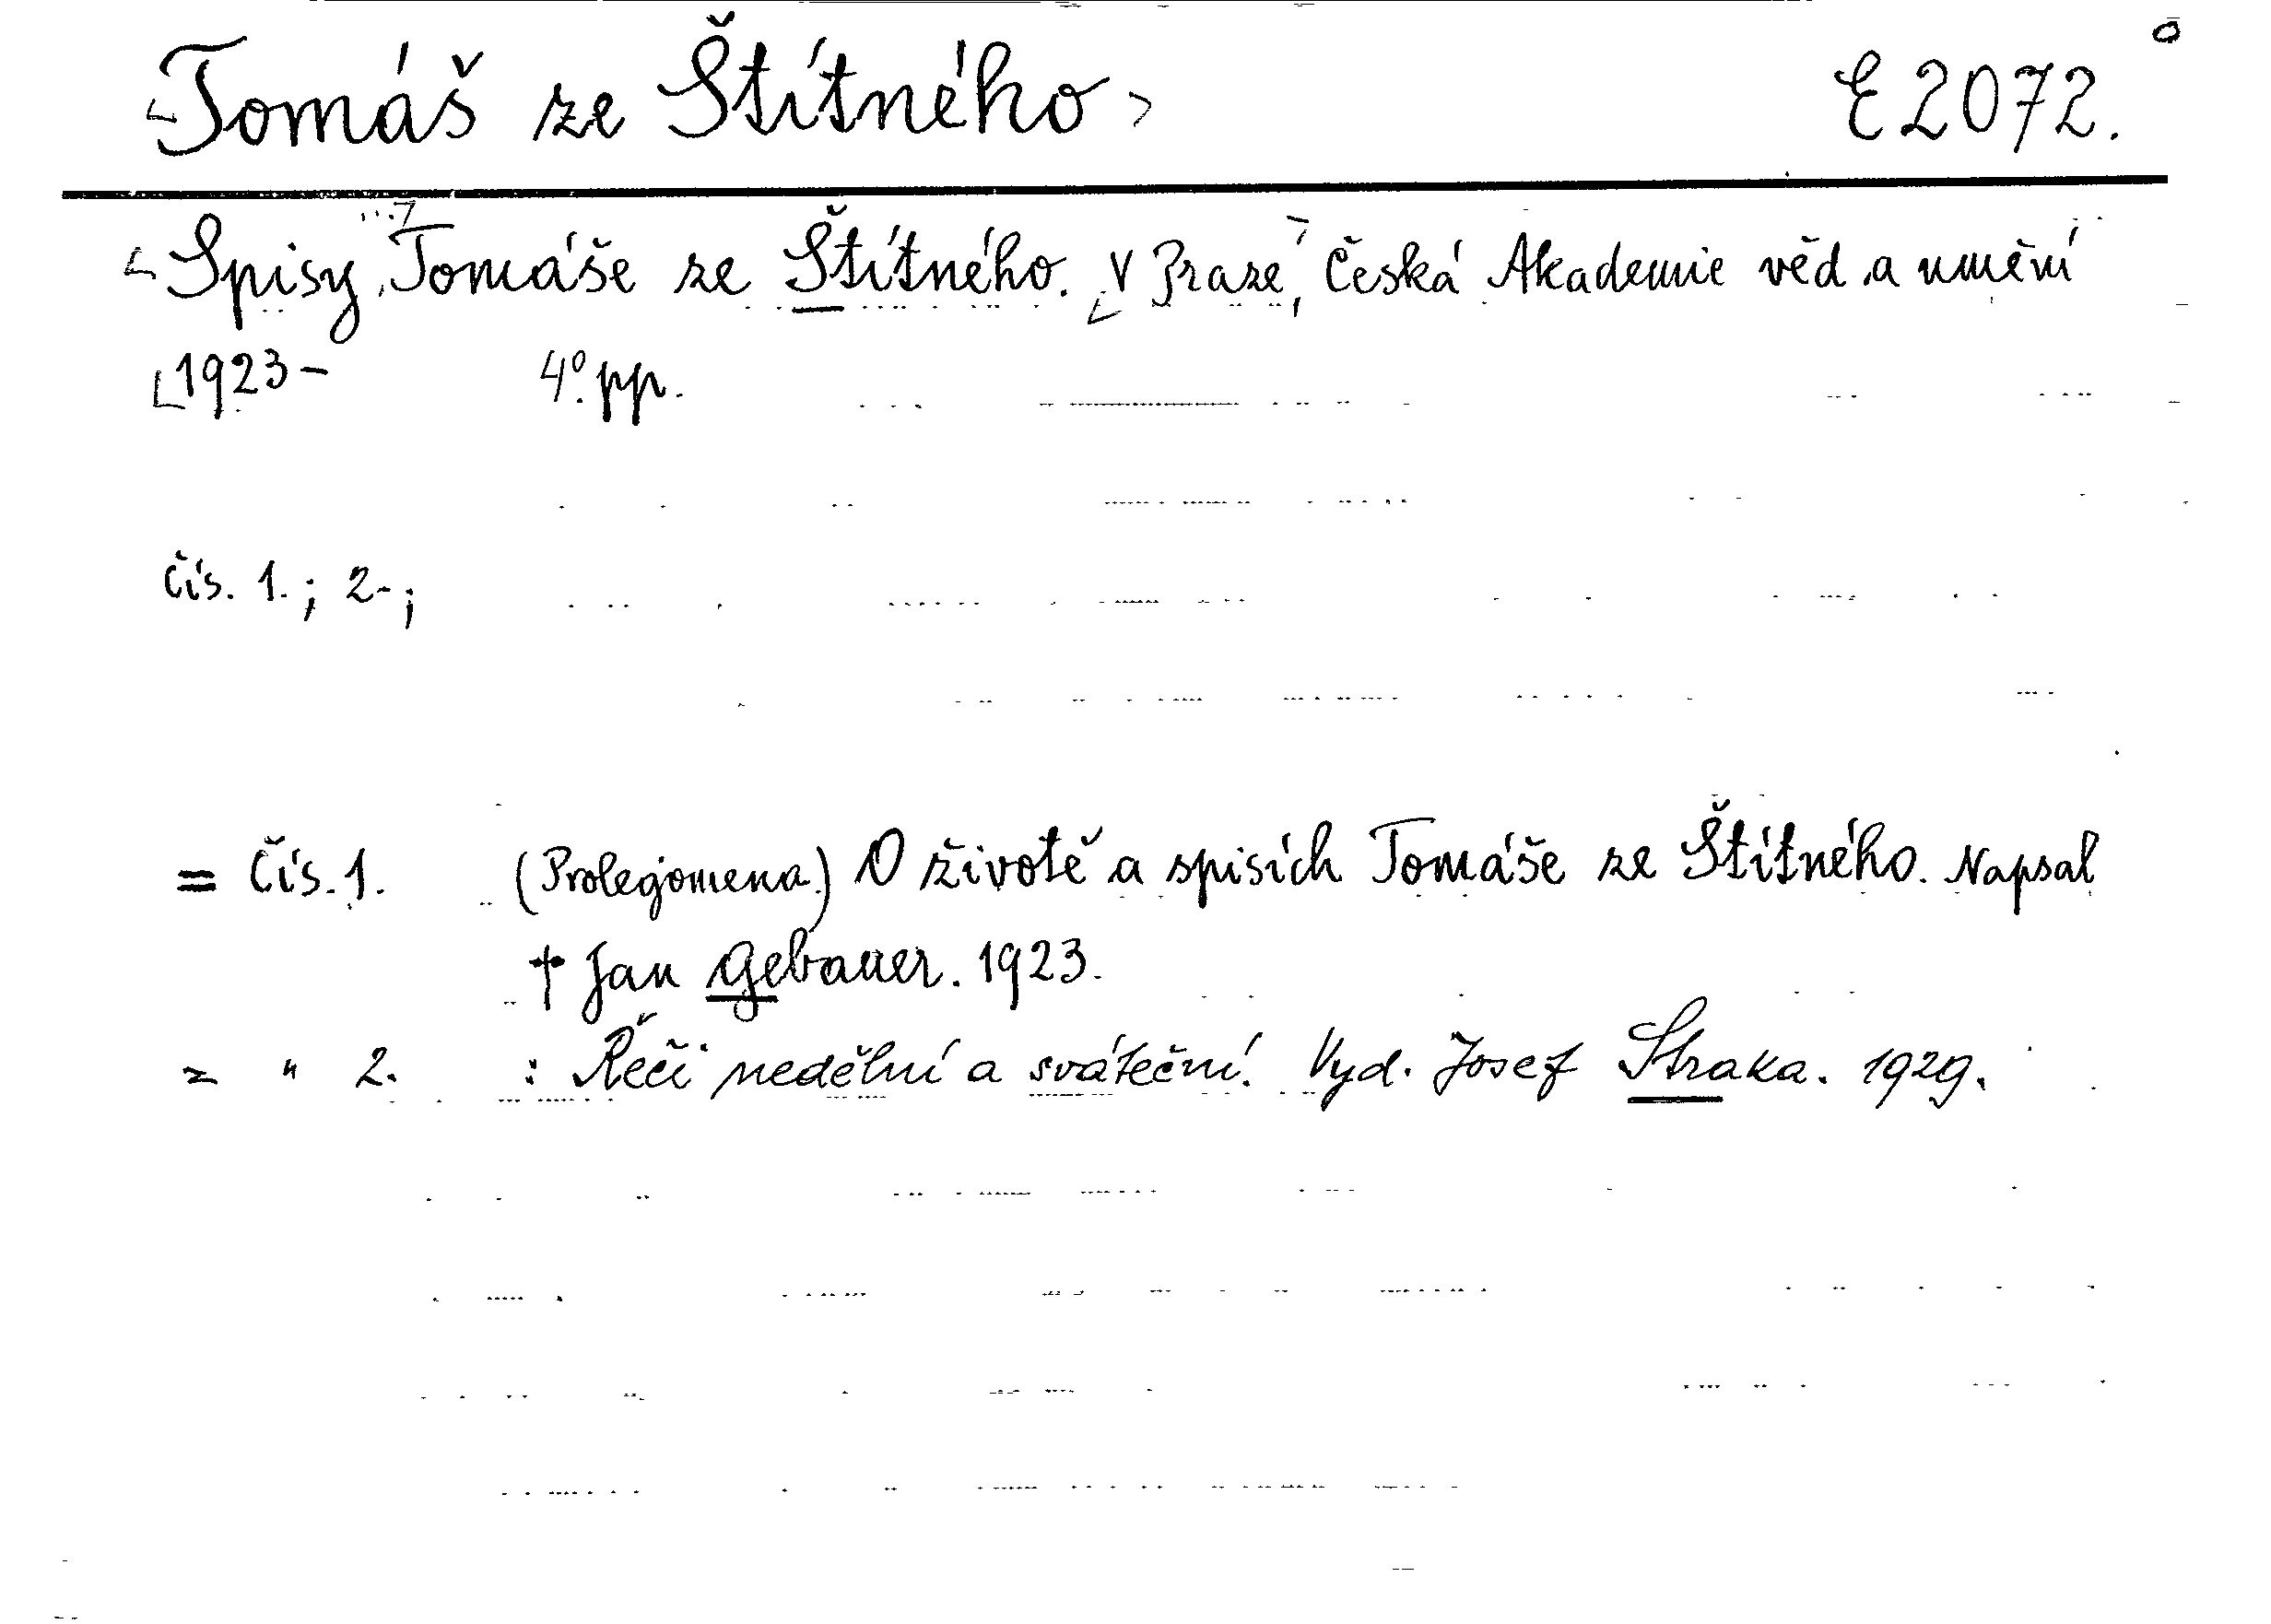 Tomáš ze Štítného E 2072.
Spisy Tomáše ze Štítného. V Praze, Česká Akademie věd a umění
1923- 4º. pp.
čís. 1.; 2.;
= Čís. 1. (Prolegomena) O životě a spisích Tomáše ze Štítného. Napsal
† Jan Gebauer. 1923.
= " 2. : Řeči nedělní a sváteční. Vyd. Josef Straka. 1929.